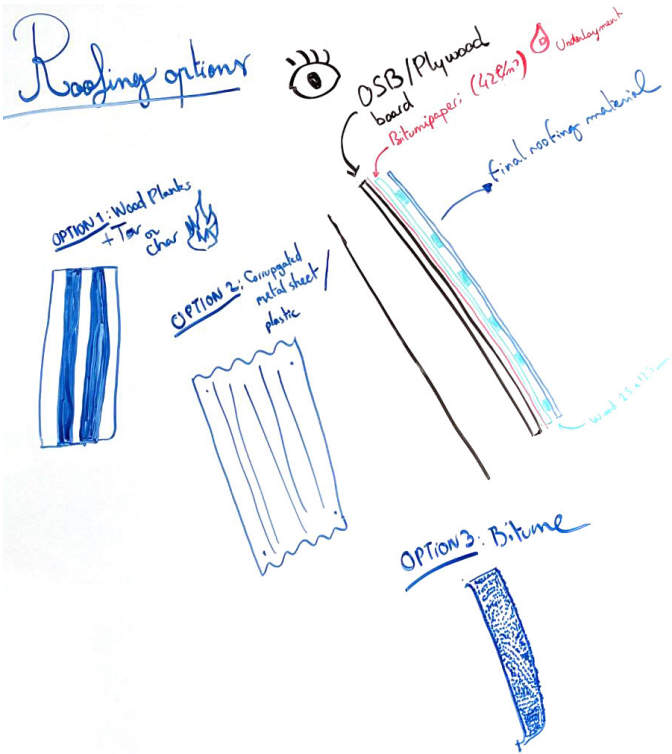 Roofing options
OSB/Plywood
board
Bitumipaperi (42€/m²)
Underlayment
final roofing material
OPTION 1: Wood Planks
+ Tar or
char
OPTION 2: Corrupgated
metal sheet /
plastic
Wood 25x125mm
OPTION 3: Bitume